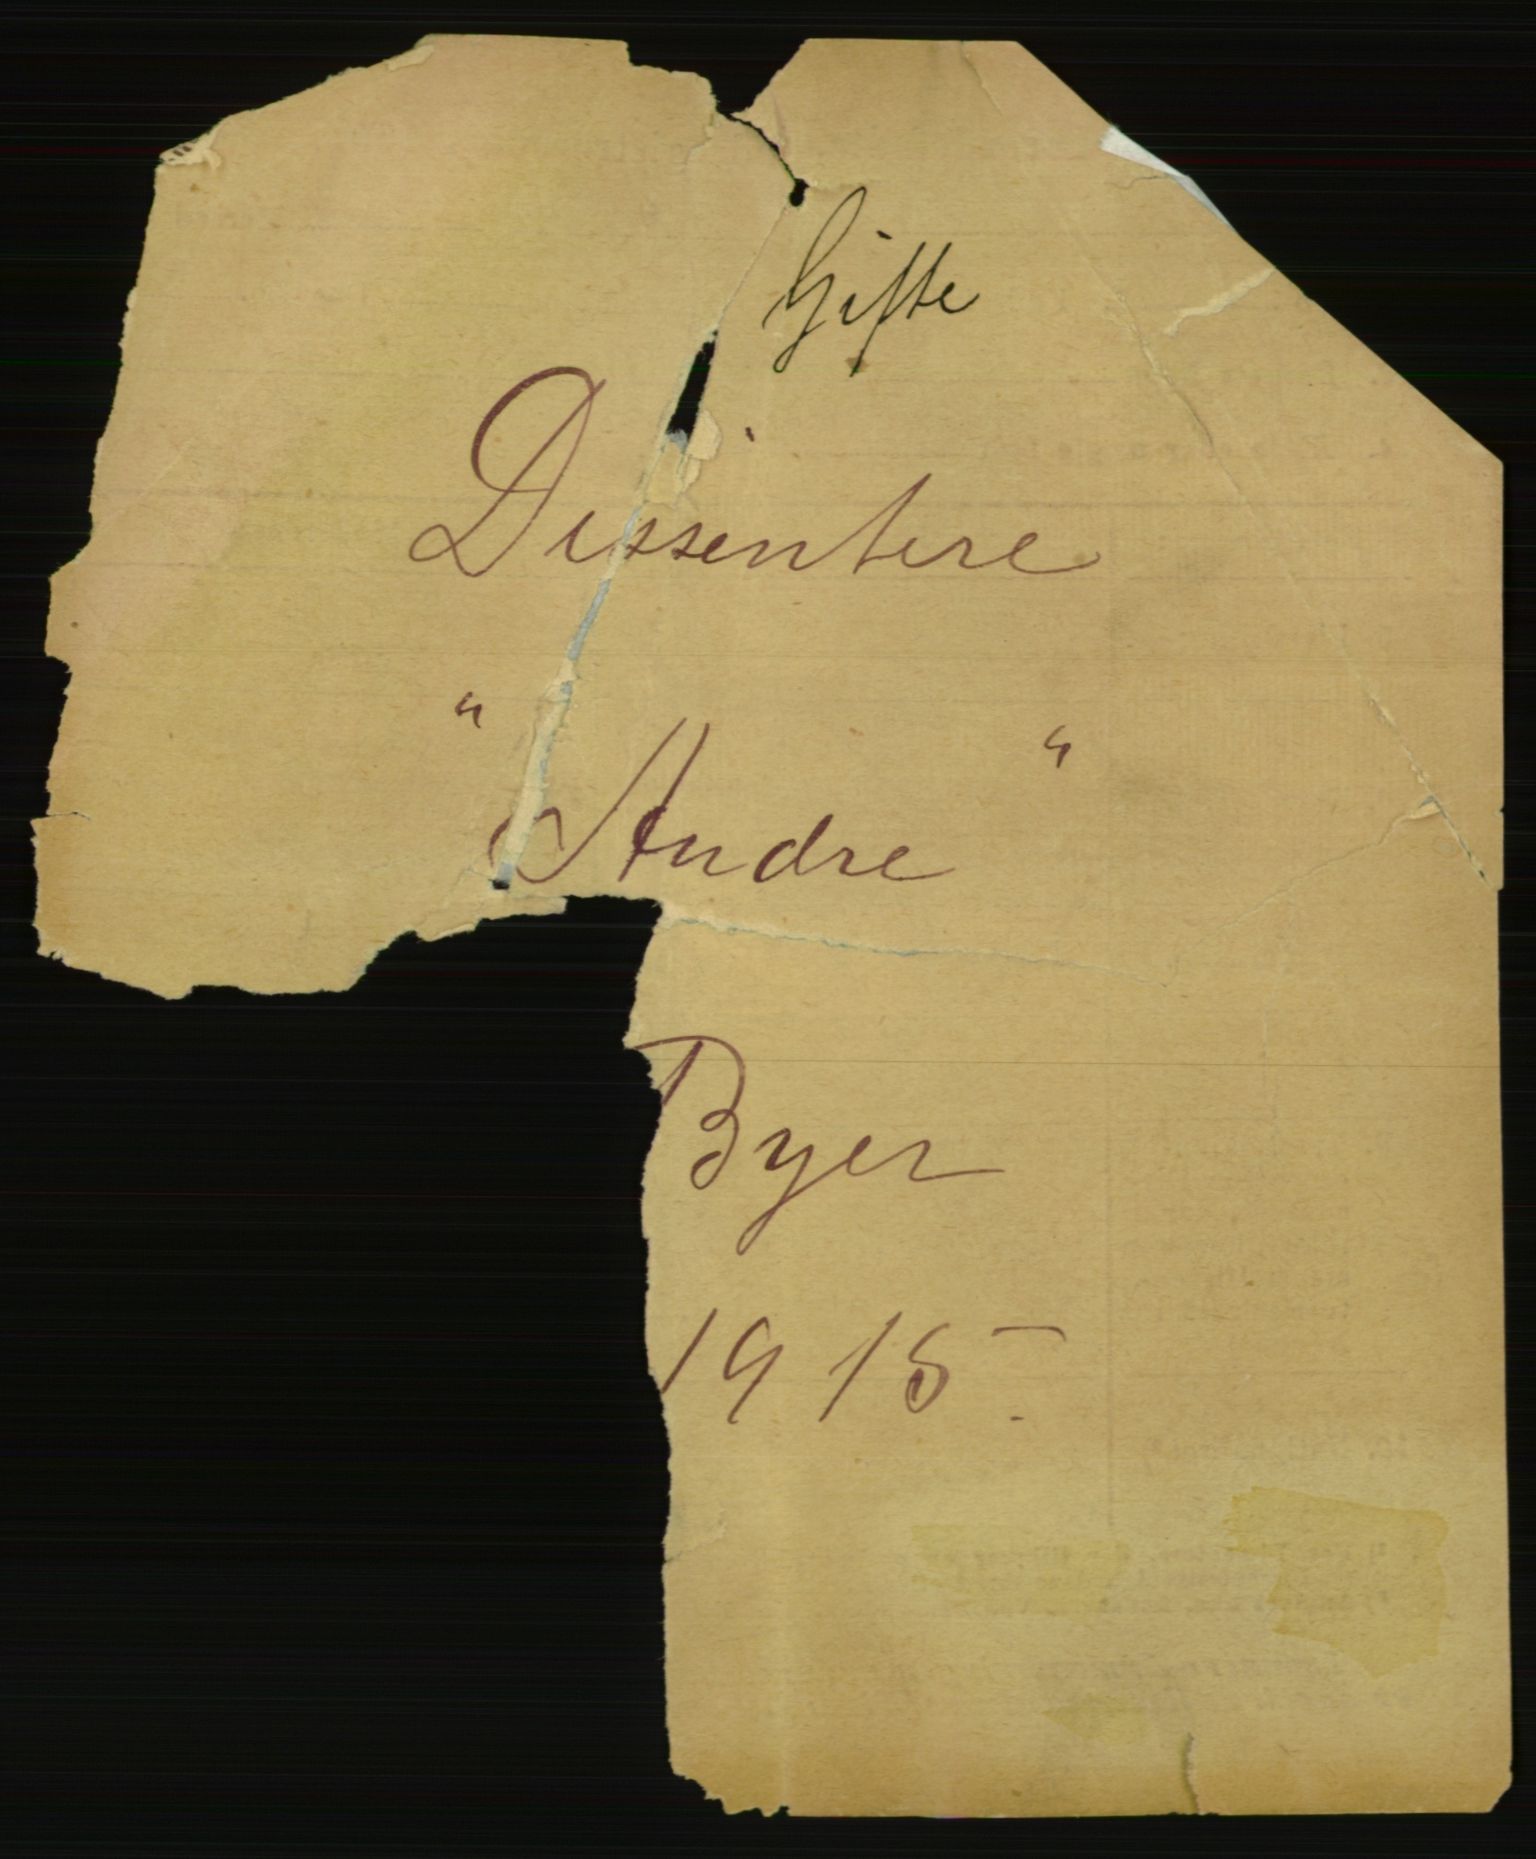 Gifte
Dissentere
" Andre "
Byer
1915